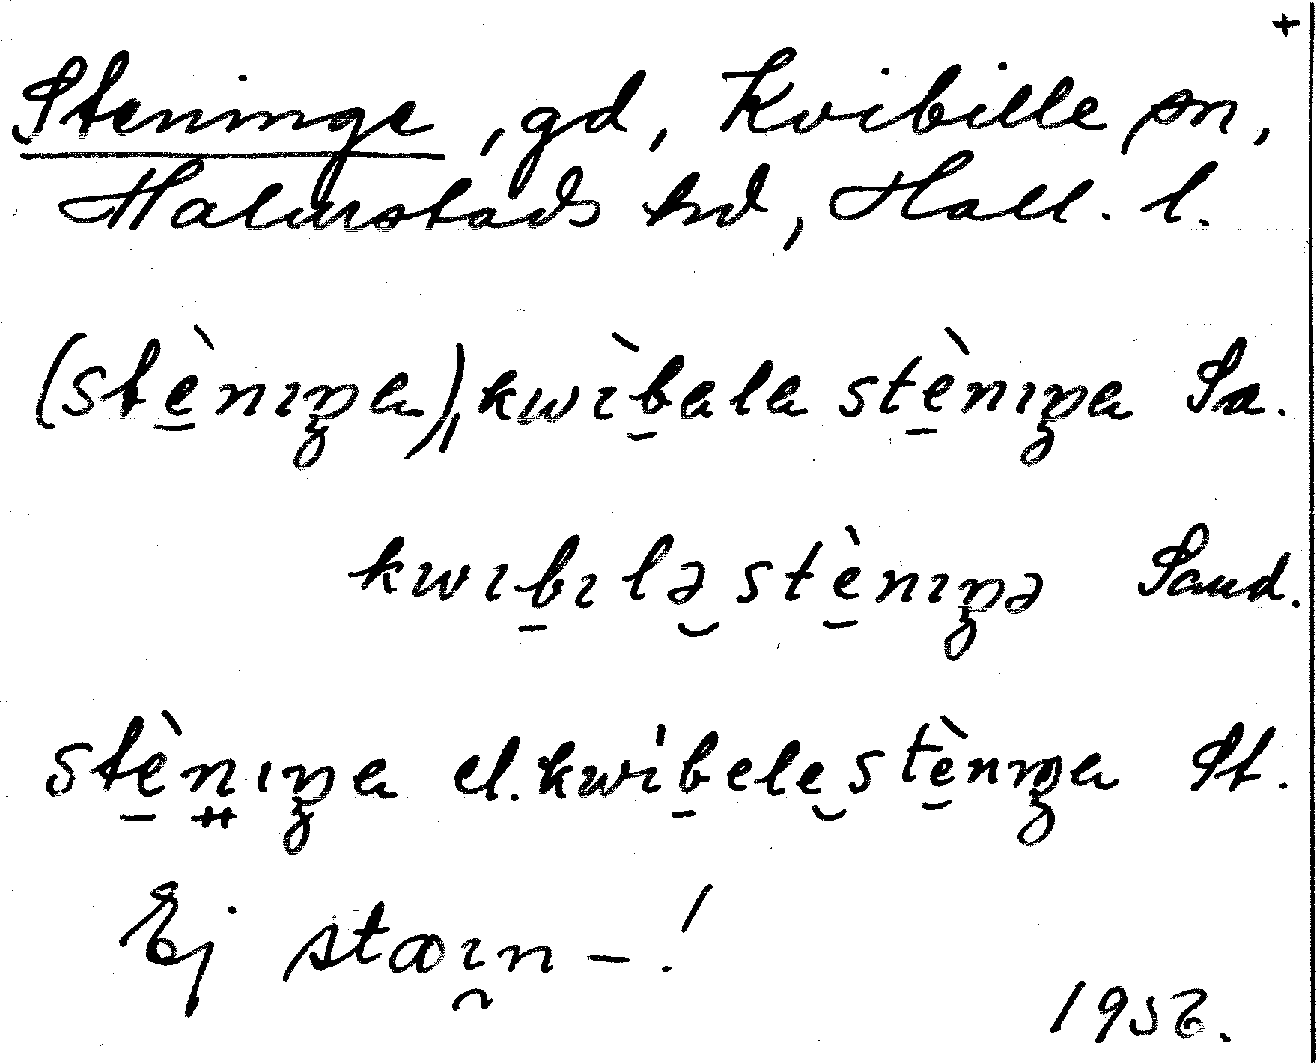 +
Steninge, gd, Kvibille sn,
Halmstads hd, Hall. l.
(stè̠nıŋa), kwìb̠ala stè̠nıŋa Sa.
kwıb̠ılə̮stè̠nıŋə Sand.
stè̠nıŋa el. kwib̠ele̮stè̠nıŋa St.
Ej stæı̯n-!
1956.